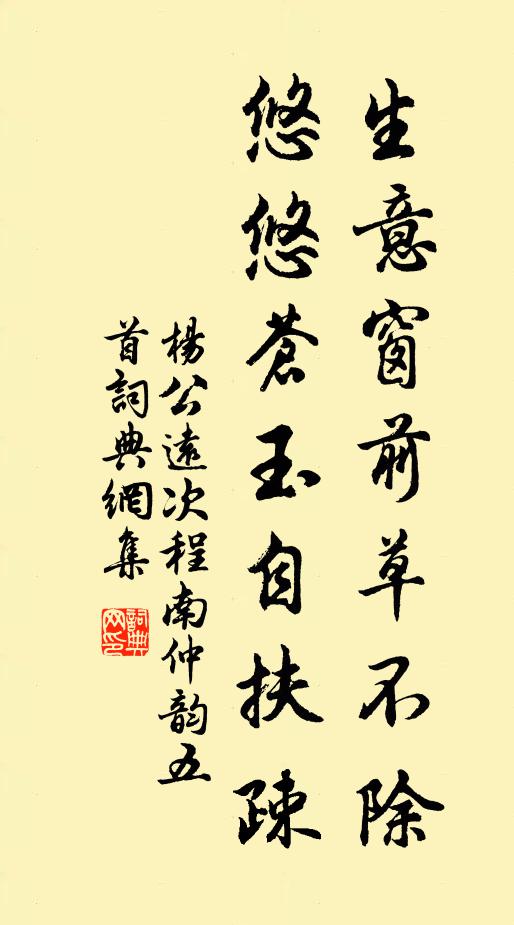 生意窗前草不除
悠悠蒼玉自扶疎
楊公遠次程南仲韵五
首詞典網集
詞典
网印